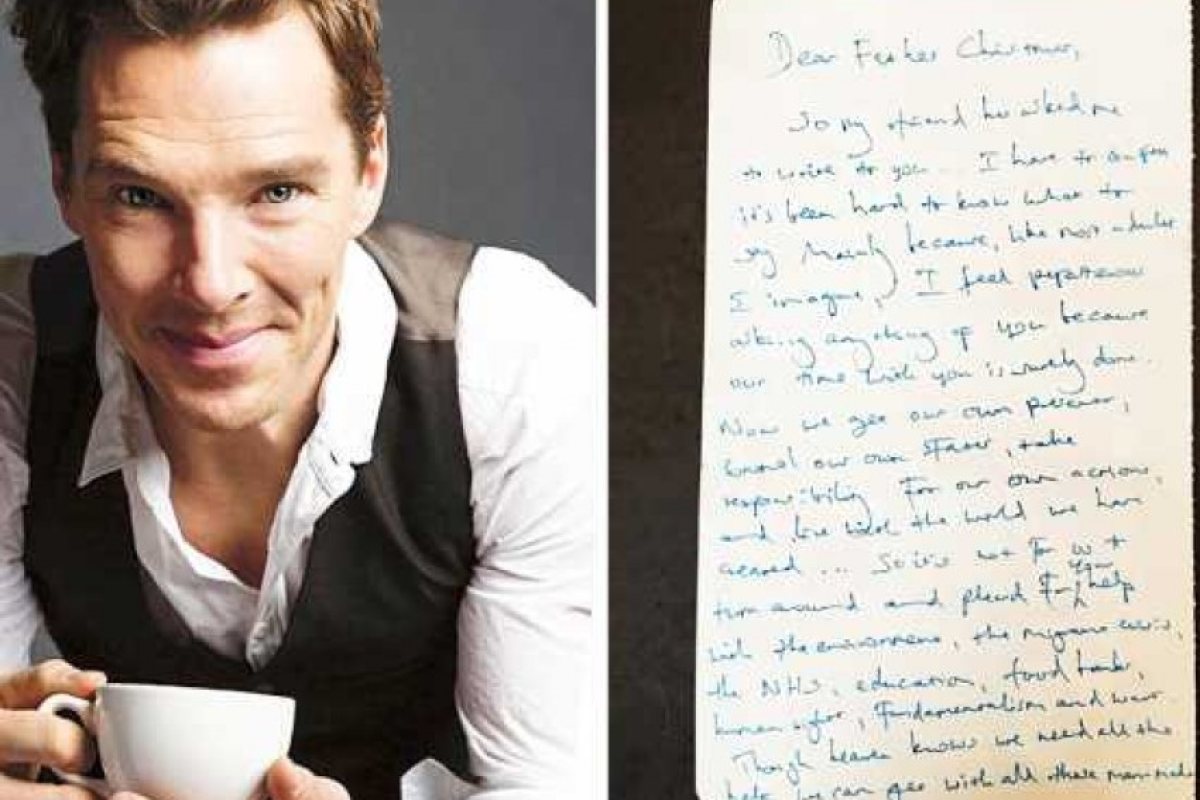 Dear Father Christmas,
So my friend has asked me
to write to you... I have to confess
it's been hard to know what to
say Mainly because, like most adults
I imagine, I feel preposterous
asking anything of you because
our time with you is surely done.
Now we get our own presents,
our own , take
responsibility For our own actions,
and live with the world we have
created ... So it's not for us to
turn around and plead For you help
with the environment, the migrant crisis,
the NHS, education, food banks,
human , Fundamentalism and war
Though heaven knows we need all the
help we can get with all these man made